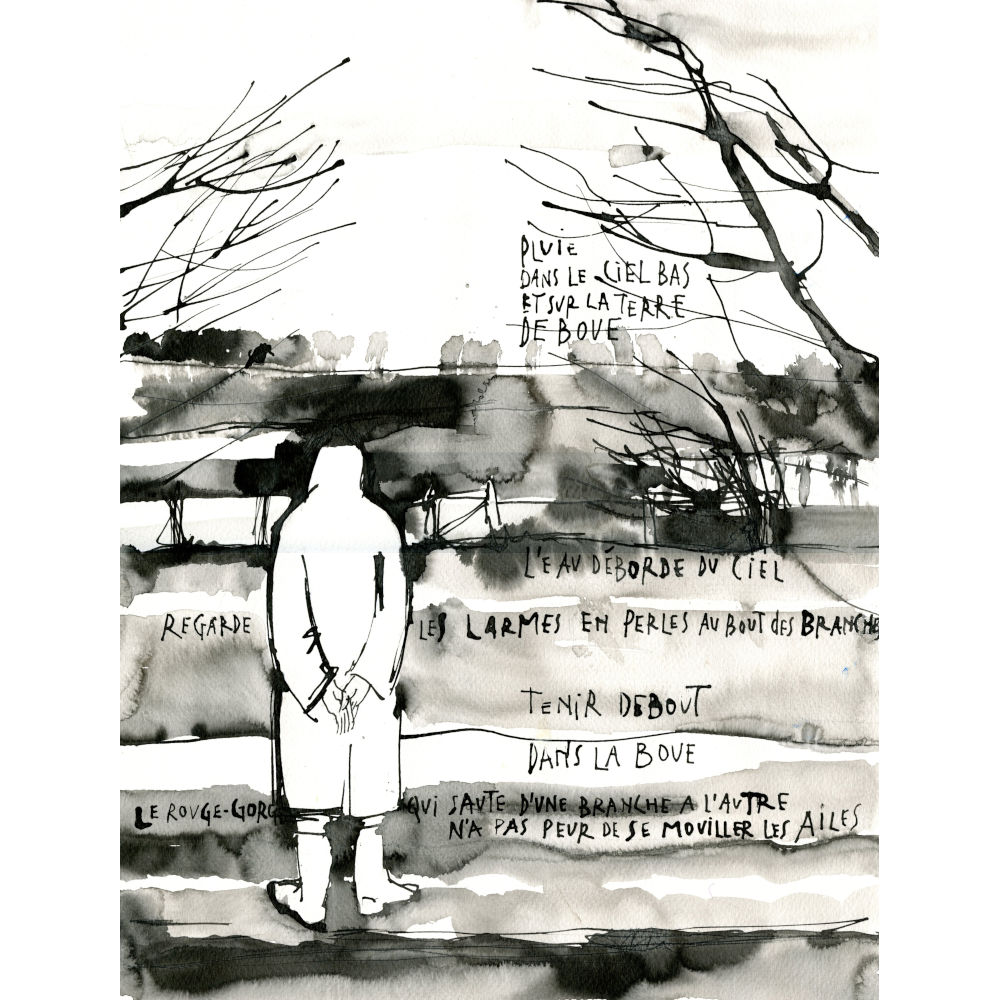 PLUIE
DANS LE CIEL BAS
ET SUR LA TERRE
DE BOUE
L'EAU DÉBORDE DU CIEL
REGARDE LES LARMES EN PERLES AU BOUT dES BRANCHES
TENIR DEBOUT
DANS LA BOUE
LE ROUGE-GORGE QUI SAUTE D'UNE BRANCHE A L'AUTRE
N'A PAS PEUR DE SE MOUILLER LES AILES